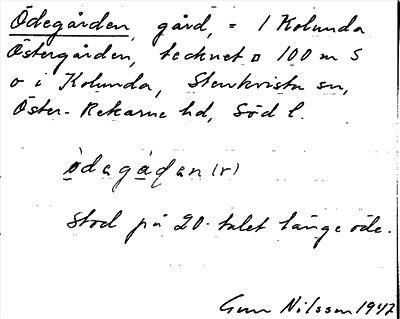 Ödegården, gård, = 1 Kolunda
Östergården, tecknet ¤ 100 m S
o i Kolunda, Stenkvista sn,
Öster-Rekarne hd, Söd l.
ödegåḍan(r)
Stod på 20-talet länge öde.
Gun Nilsson 1947